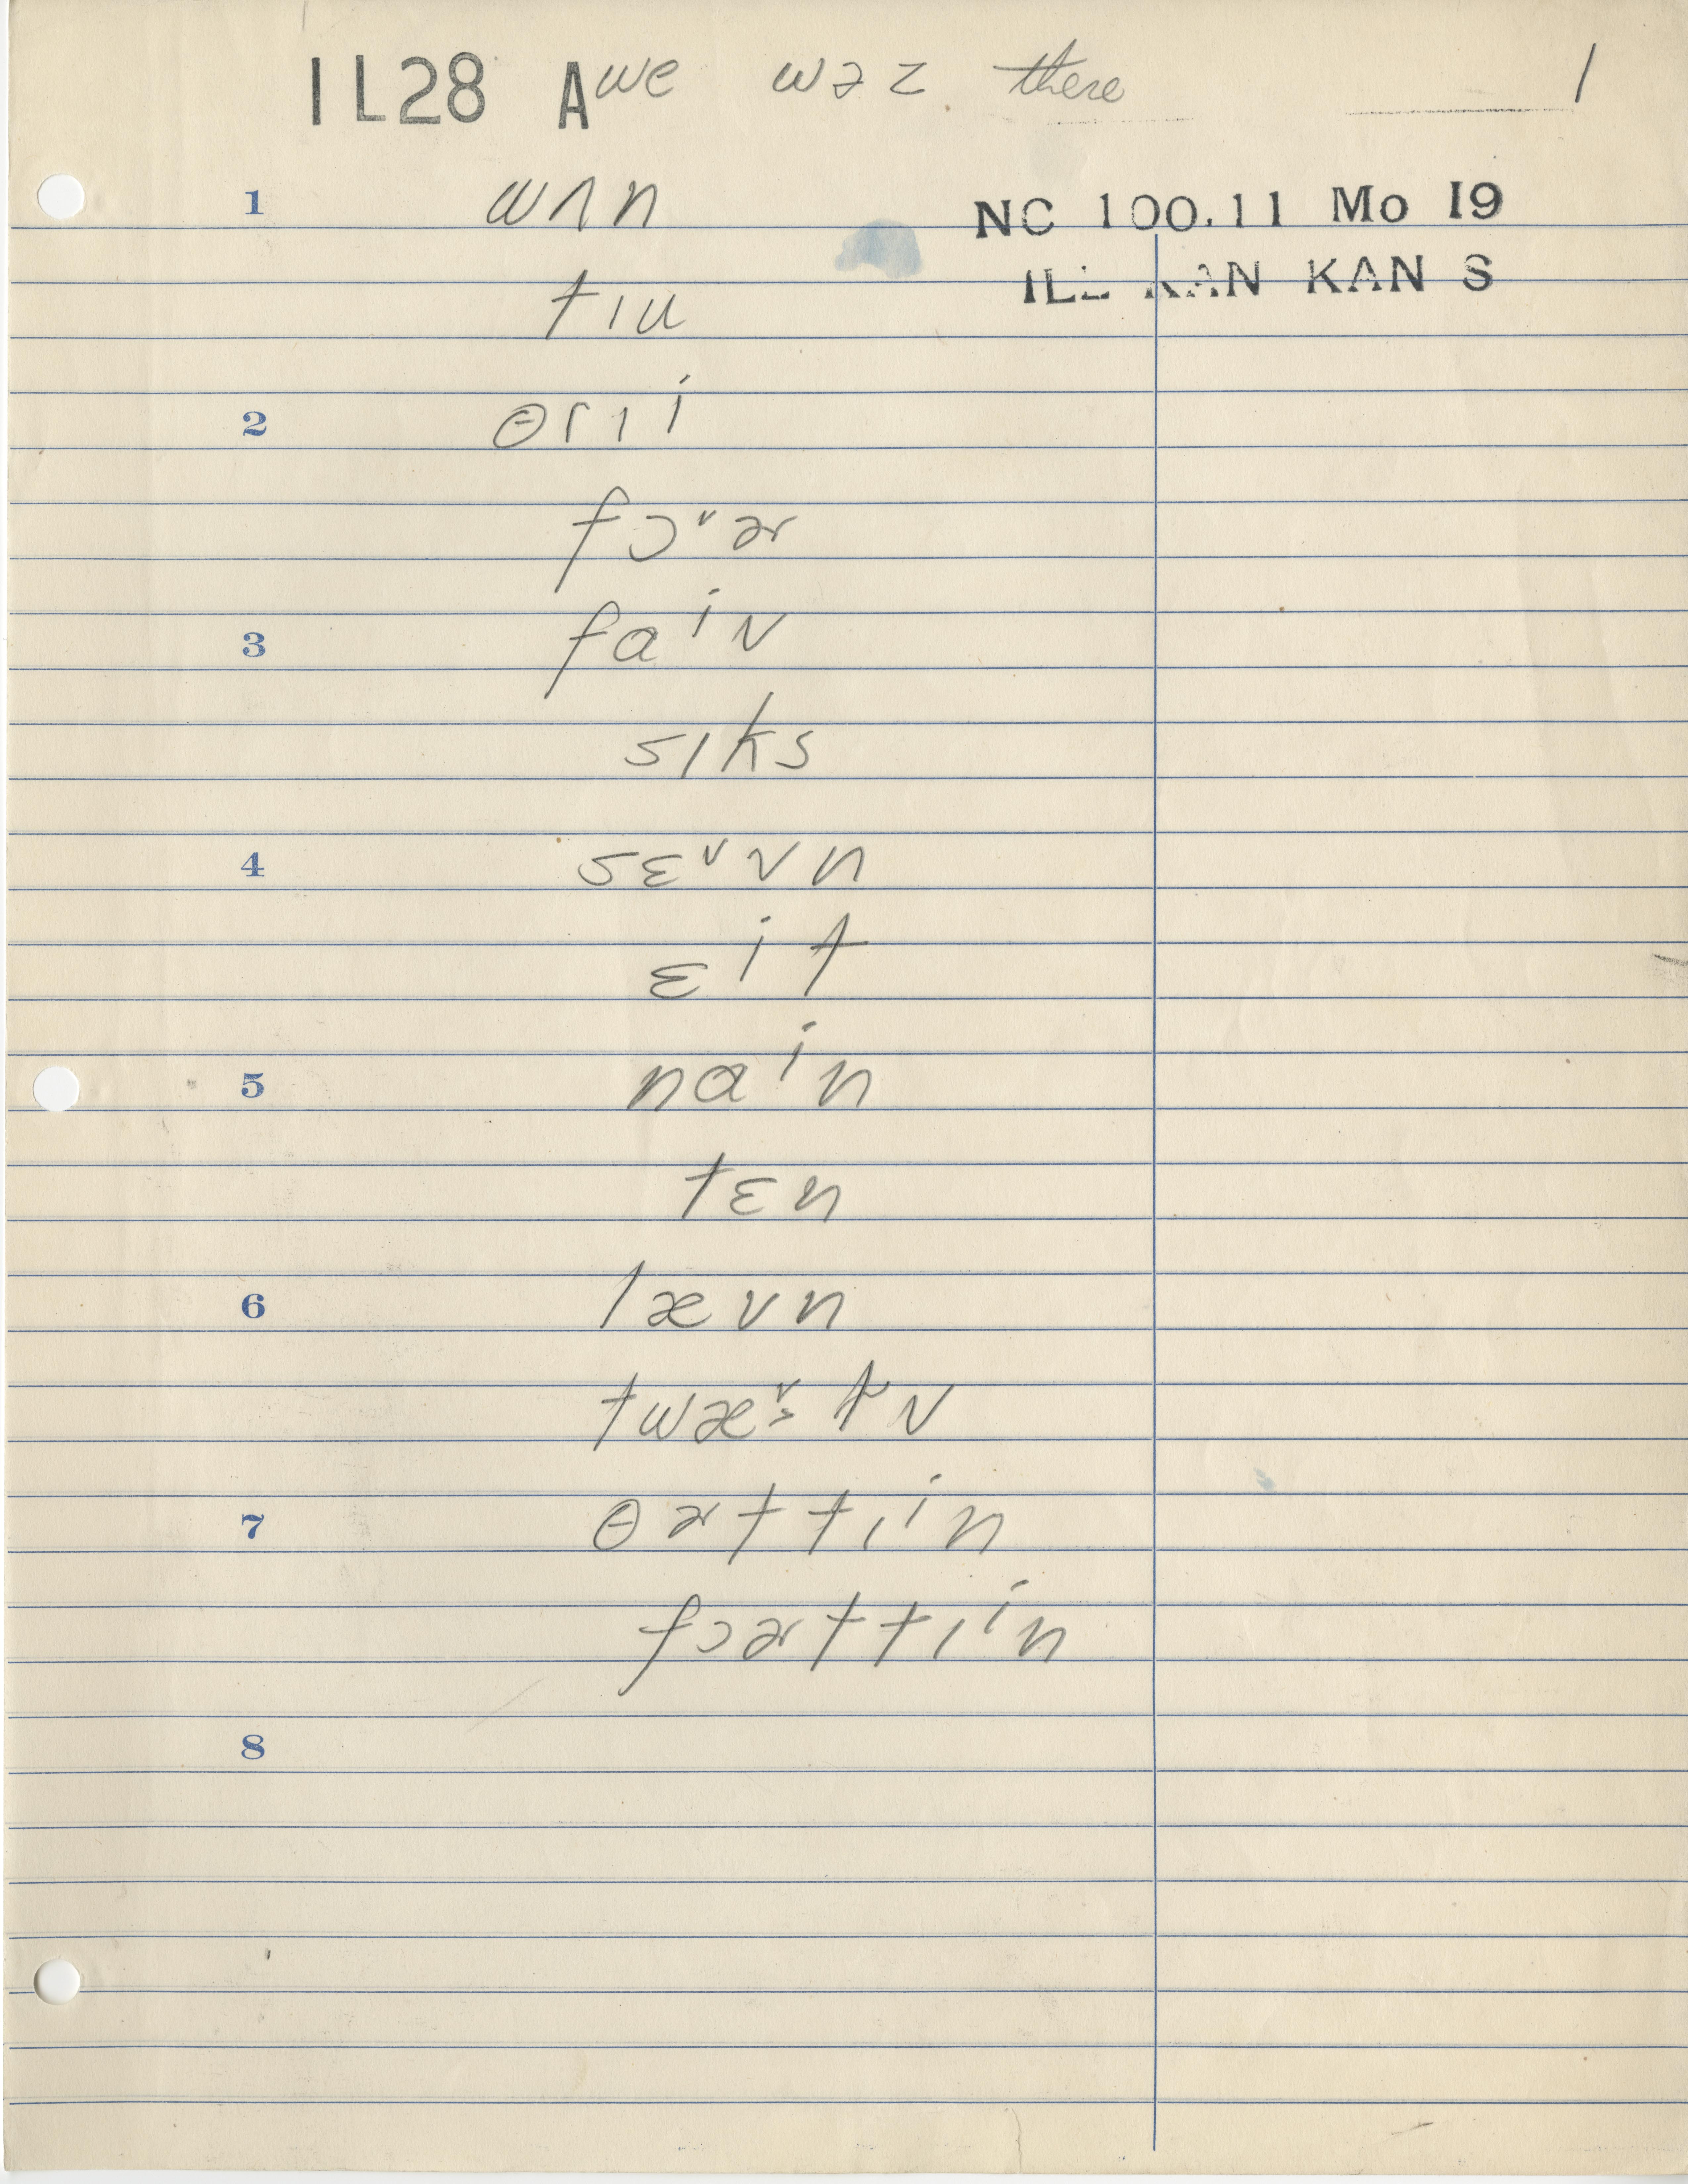 1L28 A we wəz there 1
1 wʌn NC 100.11 Mo 19
KAN S
tɪu
2 θrɪi
fɔᵛɚ
3 faⁱv
sɪks
4 sɛᵛvn
ɛⁱt
5 naⁱn
tɛn
6 lævn
7 θɚttɪⁱn
fɔɚttɪⁱn
8